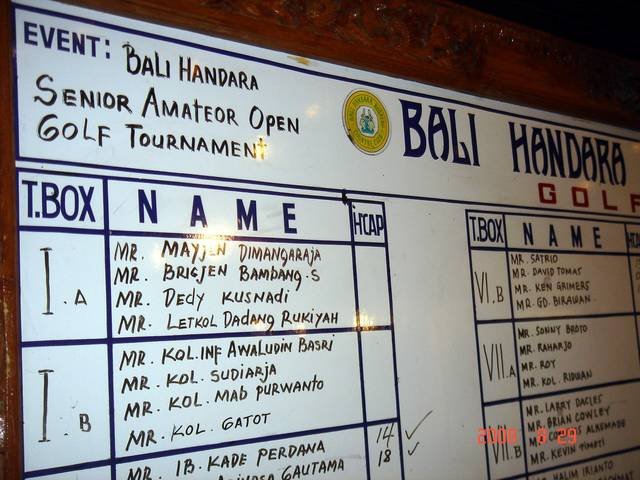 EVENT: BALI HANDARA
SENIOR AMATEOR OPEN
GOLF TOURNAMENT
BALI HANDARA
GOLF
T.BOX NAME H'CAP
I.A
MR. MAYJEN DIMANGARAJA
MR. BRIGJEN BAMBANG.S
MR. DEDY KUSNADI
MR. LETKOL DADANG RUKIYAH
I.B
MR. KOL.INF AWALUDIN BASRI
MR. KOL. SUDIARJA
MR. KOL. MAB PURWANTO
MR. KOL. GATOT
MR. IB. KADE PERDANA 14 ✓
GAUTAMA 18 ✓
T.BOX NAME
VI.B
MR. SATRIO
MR. DAVID TOMAS
MR. KEN GRIMERS
MR. GD. BIRAWAN
VII.A
MR. SONNY BROTO
MR. RAHARJO
MR. ROY
MR. KOL. RIDWAN
VII.B
MR. LARRY DACLES
MR. BRIAN COWLEY
ALKEMADE
MR. KEVIN TIMOTI
HALIM IRIANTO
2008 8 29